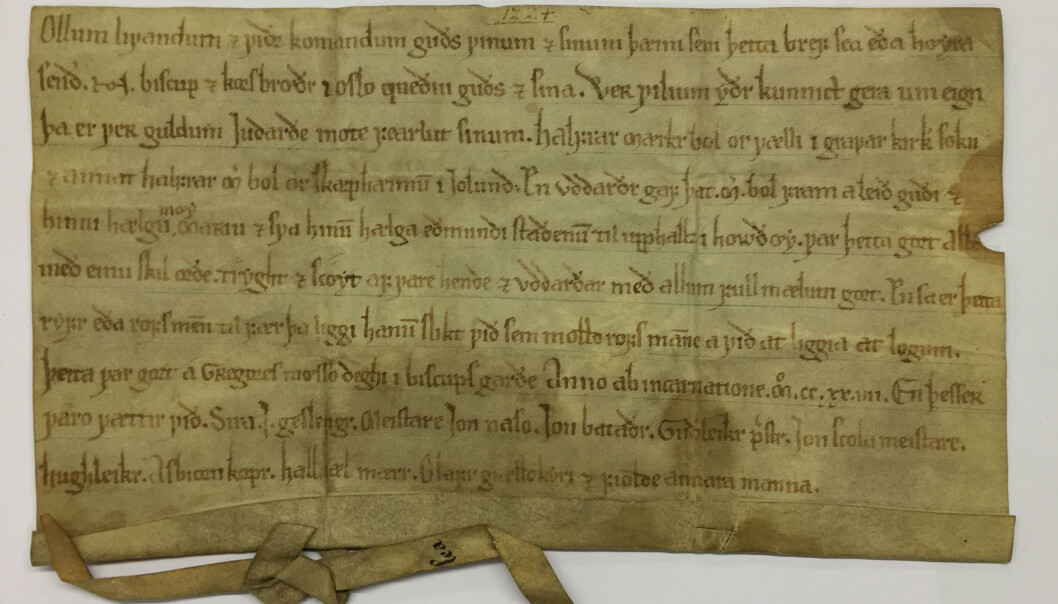 1224
Ollum lifandum ⁊ viðr komandum guðs vinum ⁊ sinum þæim sem þetta bref sea eða hoyra
send. biscup ⁊ korsbrøðr i oslo queðiu guðs ⁊ sina. Ver vilium yðr kunnict gera um eign
þa er ver guldum Judarðe mote fearlut sinum. halfrar markr bol or vælli i gravar kirk soku
⁊ annat halfrar m bol or skæpharmū i solund. En vddarðr gaf þat. m. bol fram a leið guði ⁊
hinni hælgū moy mariu ⁊ sva hinū hælga eðmundi staðenū til upphallz i howð oy. var þetta gort allt
með einu skil orðe. tryght ⁊ scoyt af vare hende ⁊ vddarðar með allum full mælum gort. En sa er þetta
ryfr eða rofs men til fær þa liggi hanū slikt við sem motto rofs māne a við at liggia at logum.
þetta var gort a Gregores messo deghi i biscups garðe Anno ab incarnatione. m̊. cc. xx. iiii. En þesser
varo vattir við. Sira geslengr. Meistare Jon naso. Jon bataðr. Guðleikr p̄str. Jon scola meistare.
hughleikr. Asbiorn kopr. hallkæl mærr. Olafr ⁊ fiolde annara manna.